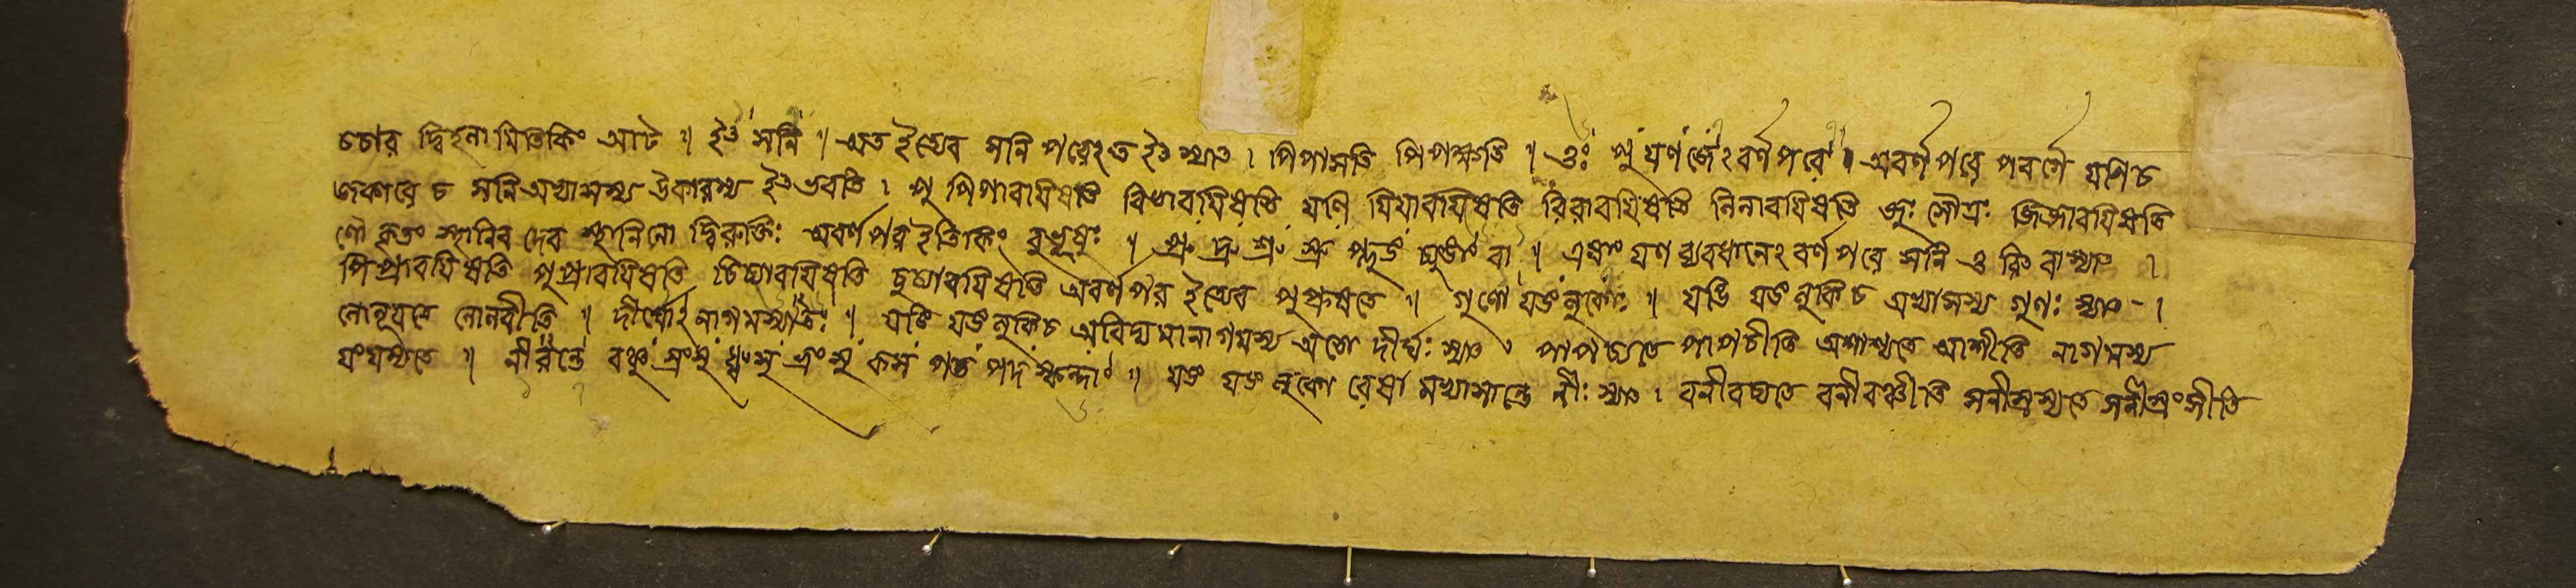 চচার দ্বিহনামিতিকিং আট ॥ ইৎ সনি ॥ অত ইত্যেব সনি পরেঽত ইৎ স্যাৎ । পিপাসতি পিপক্ষতি ॥ ওঃ পু যণ জেঽবর্ণ পরে ॥ অবর্ণ পরে পবর্গে যণি চ
জকারে চ সনি অভ্যাসস্য উকারস্য ইৎ ভবতি । পু পিপাবয়িষতি বিভাবয়িষতি যণি যিযাবয়িষতি রিরাবয়িষতি লিলাবয়িষতি জুঃ সৌত্রঃ জিজাবয়িষতি
ণৌ কৃতং স্থানিব দেব স্থানিনো দ্বিরুক্তিঃ অবর্ণ পর ইতি কিং বুভূষুঃ ॥ প্রু দ্রু শ্রু স্রু প্লুঙ চ্যুঙাং বা ॥ এষাং যণ ব্যবধানেঽবর্ণ পরে সনি ও রিৎ বা স্যাৎ ।
পিপ্রাবয়িষতি পুপ্রাবয়িষতি চিচ্যাবয়িষতি চুচ্যাবয়িষতি অবর্ণ পর ইত্যেব পুপ্রূষতে ॥ গুণো যঙ লুকোঃ ॥ যঙি যঙ লুকি চ অভ্যাসস্য গুণঃ স্যাৎ ।
লোলূয়তে লোলবীতি ॥ দীর্ঘোঽনাগমস্যাতঃ ॥ যঙি যঙ লুকি চ অবিদ্যমানাগমস্য অতো দীর্ঘঃ স্যাৎ । পাপচ্যতে পাপচীতি অশাশ্যতে আশীতি নাগমস্য
যংযম্যতে ॥ নীরন্তে বঞ্চু স্রংসু ধ্বংসু ভ্রংসু কস পত পদ স্কন্দাং ॥ যঙ যঙ লুকো রেষা মভ্যাসান্তে নীঃ স্যাৎ । বনীবচ্যতে বনীবঞ্চীতি সনীস্রস্যতে সনীস্রংসীতি